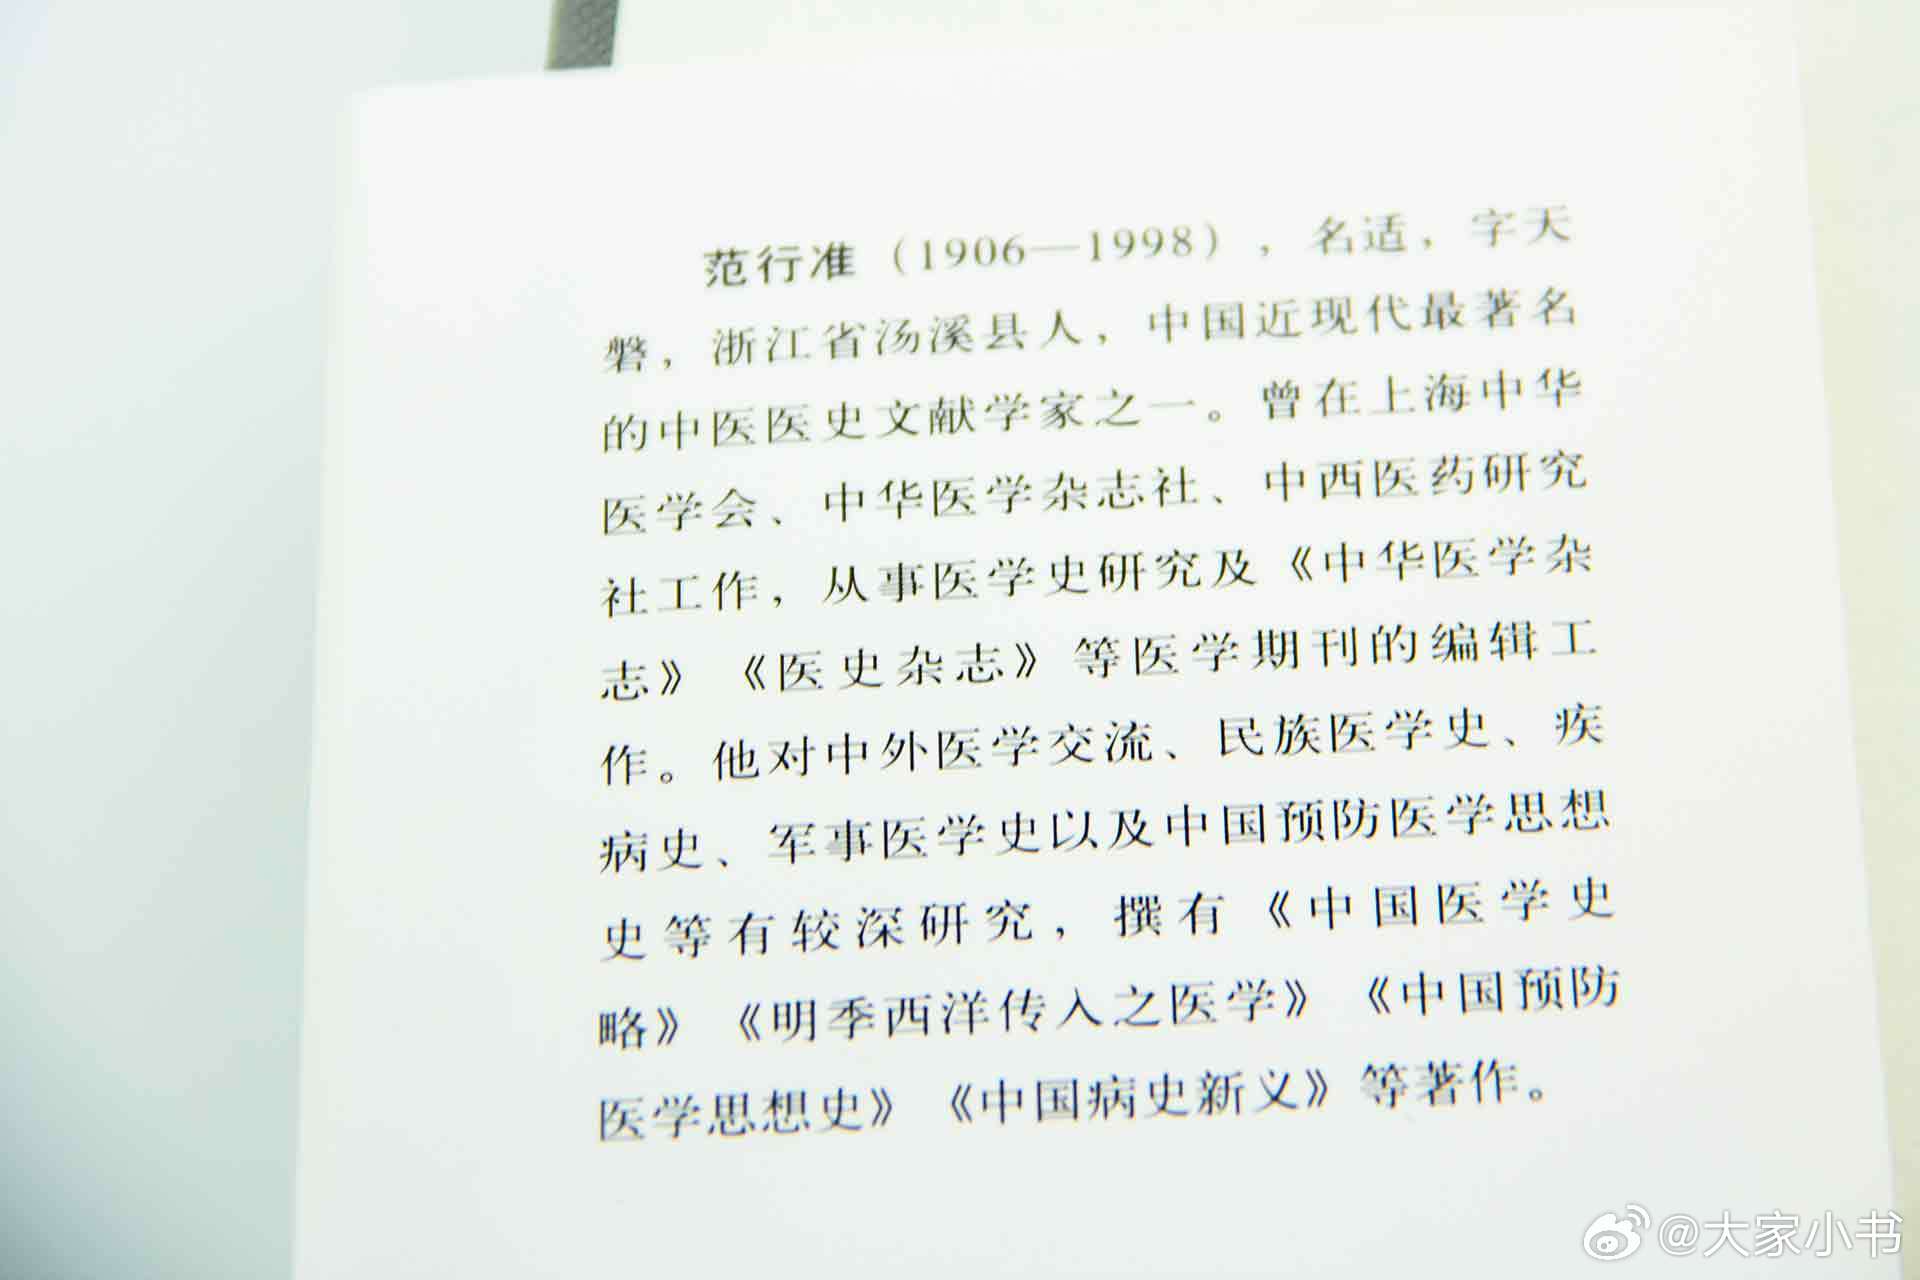 范行准（1906—1998），名适，字天
磐，浙江省汤溪县人，中国近现代最著名
的中医医史文献学家之一。曾在上海中华
医学会、中华医学杂志社、中西医药研究
社工作，从事医学史研究及《中华医学杂
志》《医史杂志》等医学期刊的编辑工
作。他对中外医学交流、民族医学史、疾
病史、军事医学史以及中国预防医学思想
史等有较深研究，撰有《中国医学史
略》《明季西洋传入之医学》《中国预防
医学思想史》《中国病史新义》等著作。
@大家小书